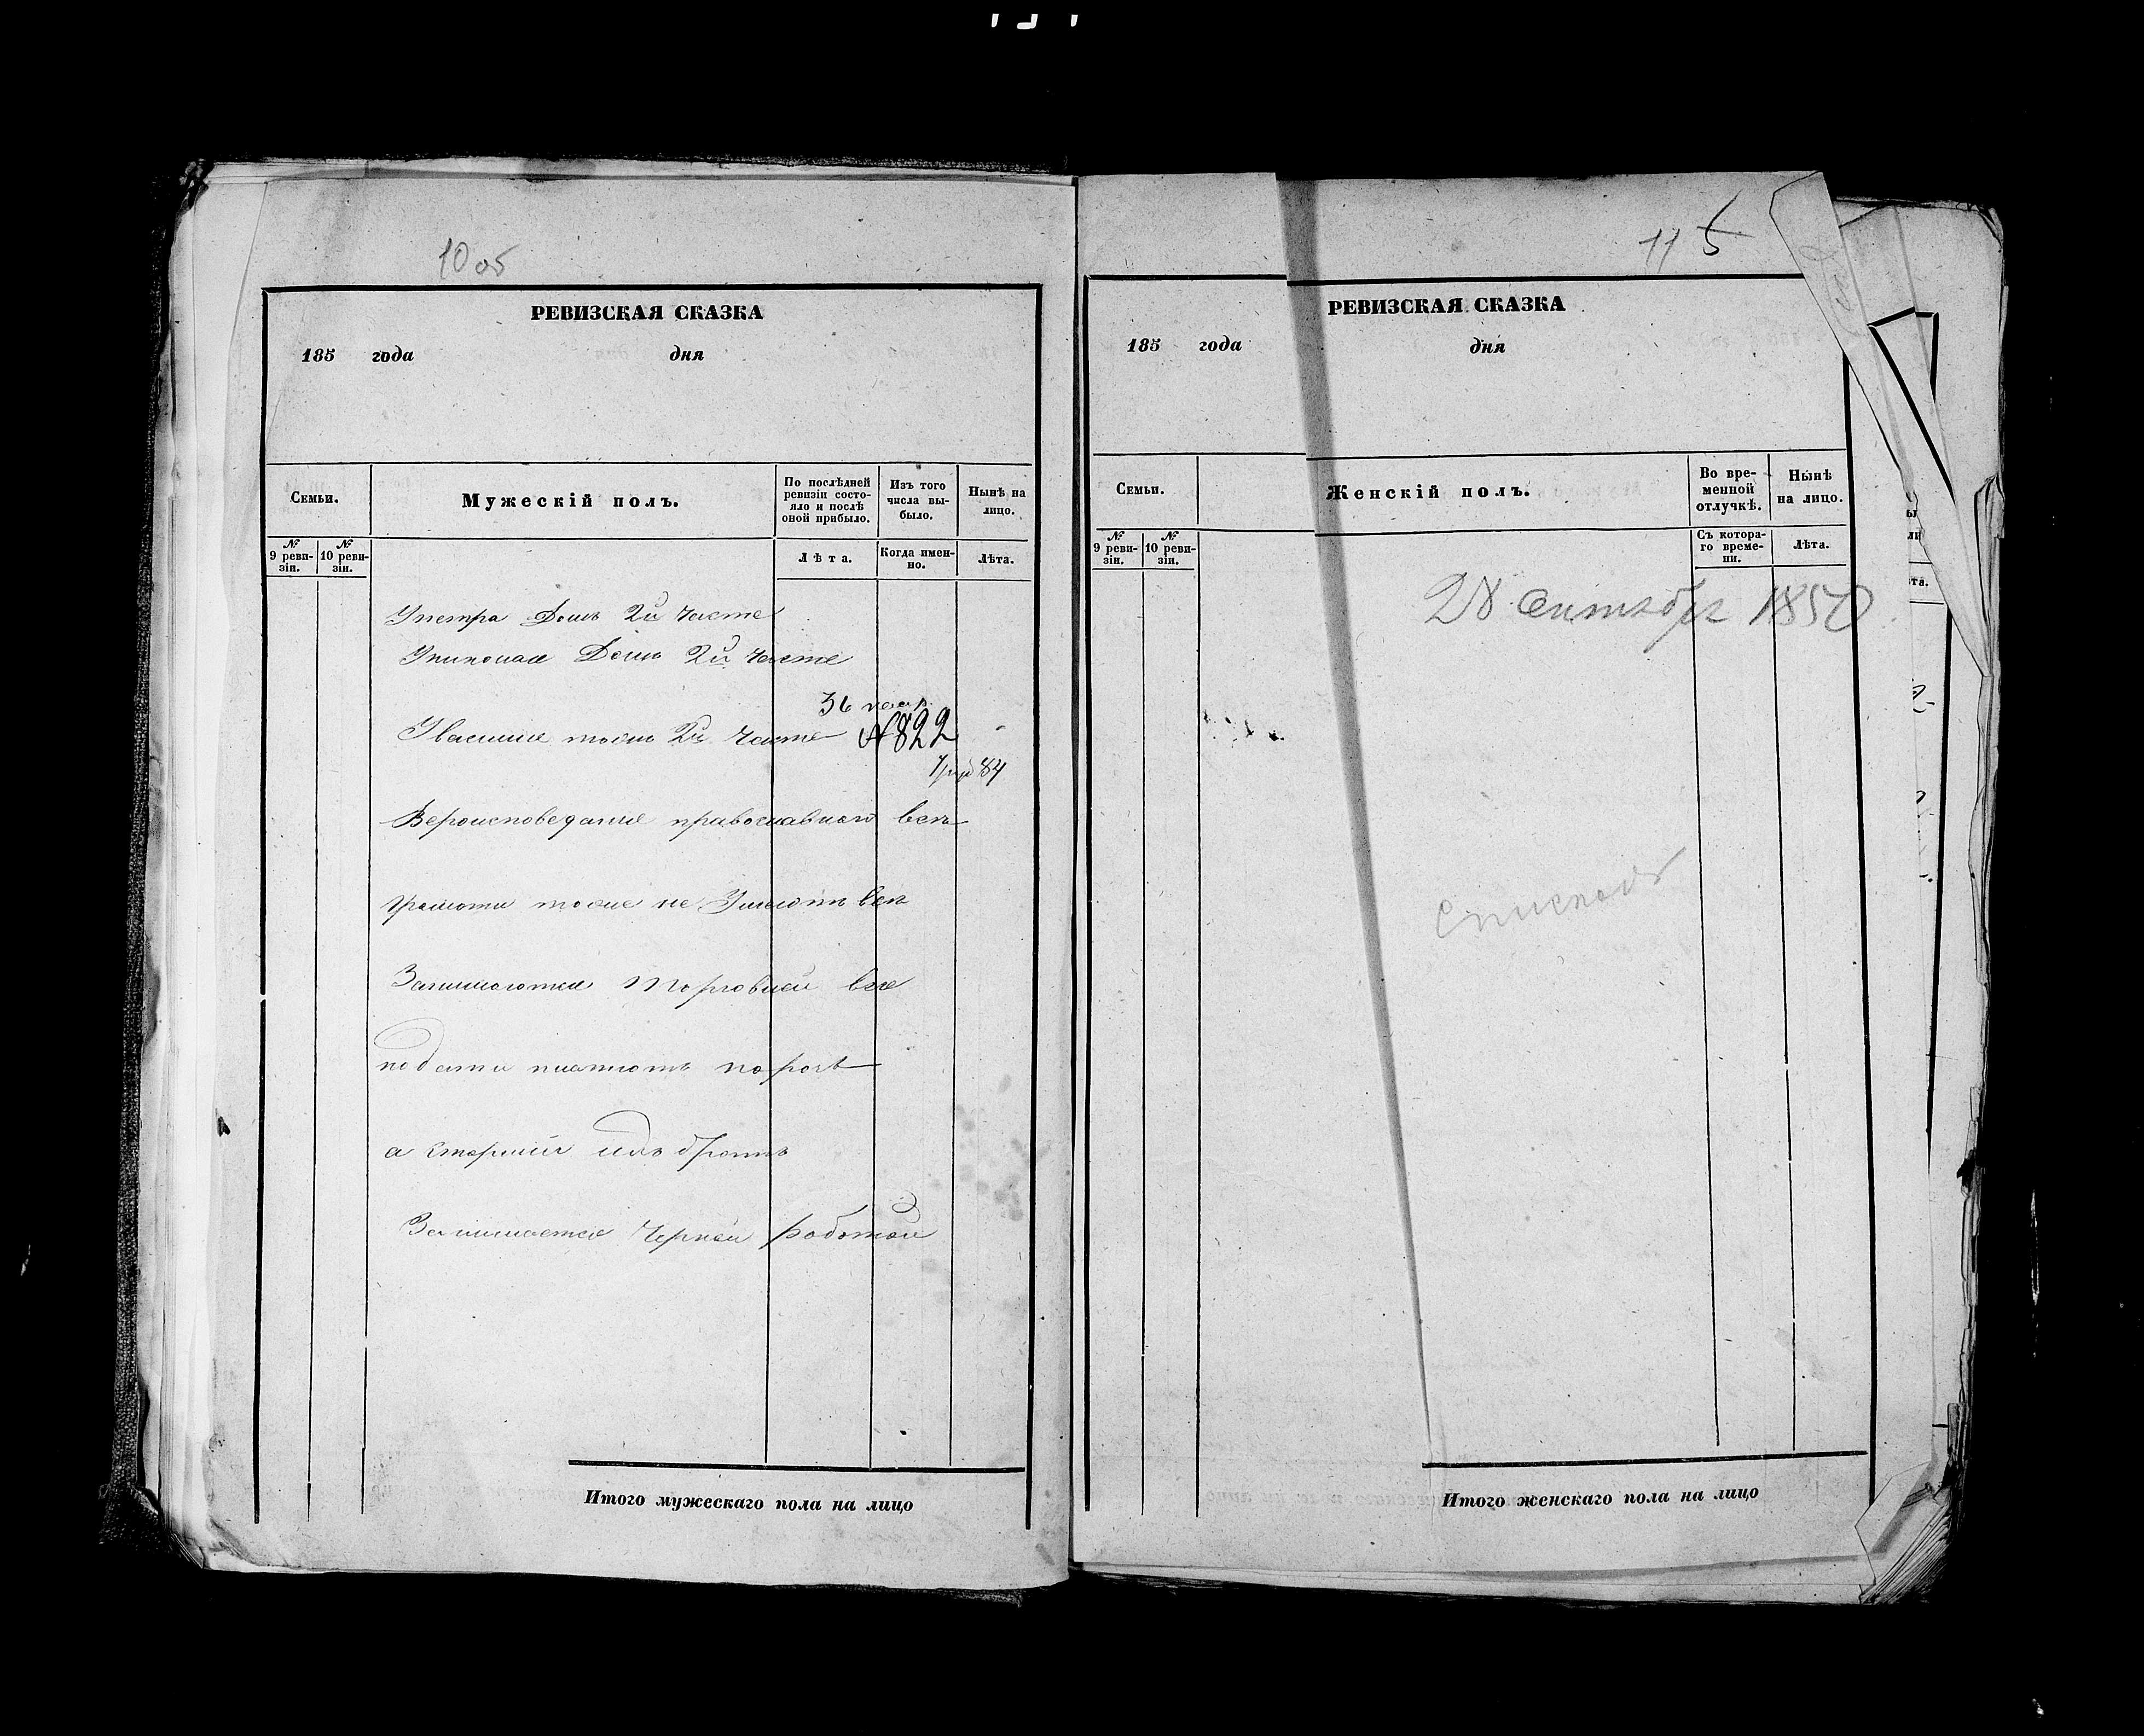 10 об
РЕВИЗСКАЯ СКАЗКА
185 года дня
Семьи.
Мужескій полъ.
По послѣдней ревизіи состо-
яло и послѣ оной прибыло.
Изъ того числа вы-
было.
Нынѣ на лицо.
№ 9 реви-
зіи.
№ 10 реви-
зіи.
Лѣта.
Когда имен-
но.
Лѣта.
Упетра Домъ 2й части
Домъ 2й части
36
тоже 2й части №822
84
Вероисповедание православной все
грамоти тоже не Умеютъ все
Занимаются торговлей все
подати платютъ
а старший ихъ братъ
Занимается Черной работой
Итого мужескаго пола на лицо
11 5
РЕВИЗСКАЯ СКАЗКА
185 года дня
Семьи.
Женскій полъ.
Во вре-
менной отлучкѣ.
Нынѣ на лицо.
№ 9 реви-
зіи.
№ 10 реви-
зіи.
Съ котора-
го време-
ни.
Лѣта.
28 Сентября 1850
Списковъ
Итого женскаго пола на лицо